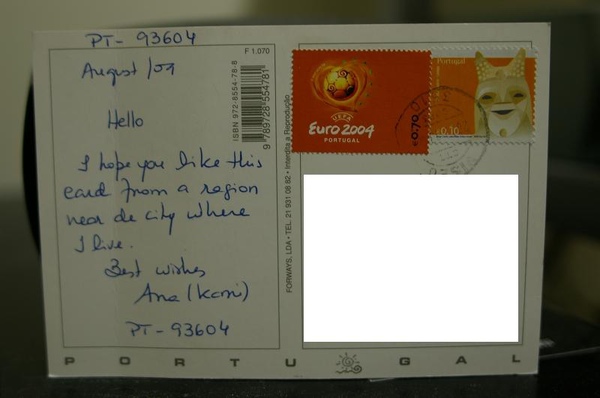 PT- 93604
August/09
Hello
I hope you like this
card from a region
near de city where
I live.
Best wishes
Ana (Kami)
PT- 93604
F 1.070
ISBN 972-8554-78-8
9 789728 554781
FORWAYS, LDA • TEL. 21 931 08 82 • Interdita a Reprodução
UEFA
EURO 2004
PORTUGAL
€0,70
Portugal
€0,10
PORTUGAL